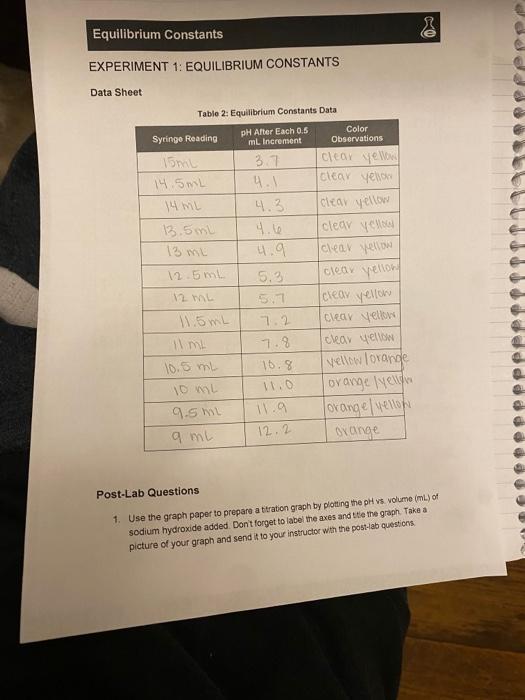 Equilibrium Constants
EXPERIMENT 1: EQUILIBRIUM CONSTANTS
Data Sheet
Table 2: Equilibrium Constants Data
Syringe Reading pH After Each 0.5 mL Increment Color Observations
15mL 3.7 clear yellow
14.5mL 4.1 clear yellow
14 mL 4.3 clear yellow
13.5mL 4.6 clear yellow
13 mL 4.9 clear yellow
12.5mL 5.3 clear yellow
12 mL 5.7 clear yellow
11.5mL 7.2 clear yellow
11 mL 7.8 clear yellow
10.5 mL 10.8 yellow/orange
10 mL 11.0 orange/yellow
9.5mL 11.9 orange/yellow
9 mL 12.2 orange
Post-Lab Questions
1. Use the graph paper to prepare a titration graph by plotting the pH vs. volume (mL) of
sodium hydroxide added. Don't forget to label the axes and title the graph. Take a
picture of your graph and send it to your instructor with the post-lab questions.